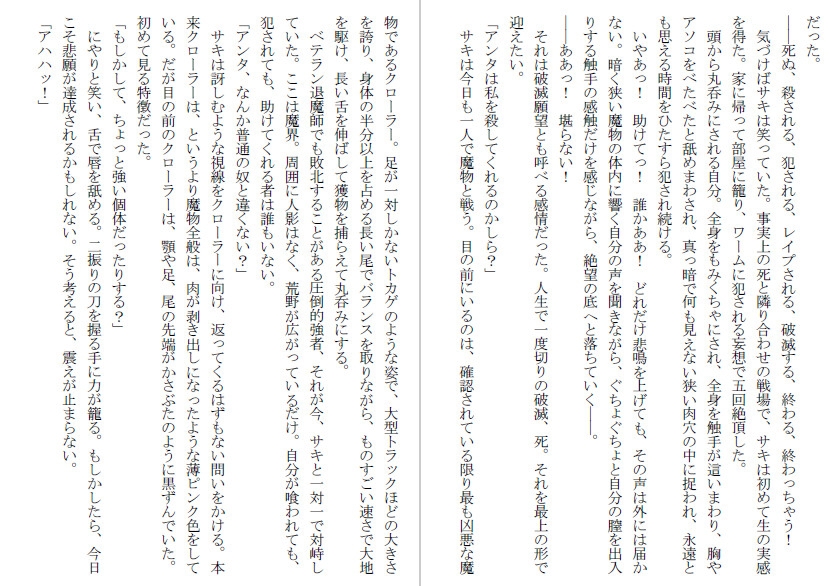 だった。
――死ぬ、殺される、犯される、レイプされる、破滅する、終わる、終わっちゃう！
　気づけばサキは笑っていた。事実上の死と隣り合わせの戦場で、サキは初めて生の実感
を得た。家に帰って部屋に籠り、ワームに犯される妄想で五回絶頂した。
　頭から丸呑みにされる自分。全身をもみくちゃにされ、全身を触手が這いまわり、胸や
アソコをべたべたと舐めまわされ、真っ暗で何も見えない狭い肉穴の中に捉われ、永遠と
も思える時間をひたすら犯され続ける。
　いやあっ！　助けてっ！　誰かああ！　どれだけ悲鳴を上げても、その声は外には届か
ない。暗く狭い魔物の体内に響く自分の声を聞きながら、ぐちょぐちょと自分の膣を出入
りする触手の感触だけを感じながら、絶望の底へと落ちていく――。
　――ああっ！　堪らない！
　それは破滅願望とも呼べる感情だった。人生で一度切りの破滅、死。それを最上の形で
迎えたい。
「アンタは私を殺してくれるのかしら？」
　サキは今日も一人で魔物と戦う。目の前にいるのは、確認されている限り最も凶悪な魔
物であるクローラー。足が一対しかないトカゲのような姿で、大型トラックほどの大きさ
を誇り、身体の半分以上を占める長い尾でバランスを取りながら、ものすごい速さで大地
を駆け、長い舌を伸ばして獲物を捕らえて丸呑みにする。
　ベテラン退魔師でも敗北することがある圧倒的強者、それが今、サキと一対一で対峙し
ていた。ここは魔界。周囲に人影はなく、荒野が広がっているだけ。自分が喰われても、
犯されても、助けてくれる者は誰もいない。
「アンタ、なんか普通の奴と違くない？」
　サキは訝しむような視線をクローラーに向け、返ってくるはずもない問いをかける。本
来クローラーは、というより魔物全般は、肉が剥き出しになったような薄ピンク色をして
いる。だが目の前のクローラーは、顎や足、尾の先端がかさぶたのように黒ずんでいた。
初めて見る特徴だった。
「もしかして、ちょっと強い個体だったりする？」
　にやりと笑い、舌で唇を舐める。二振りの刀を握る手に力が籠る。もしかしたら、今日
こそ悲願が達成されるかもしれない。そう考えると、震えが止まらない。
「アハハッ！」